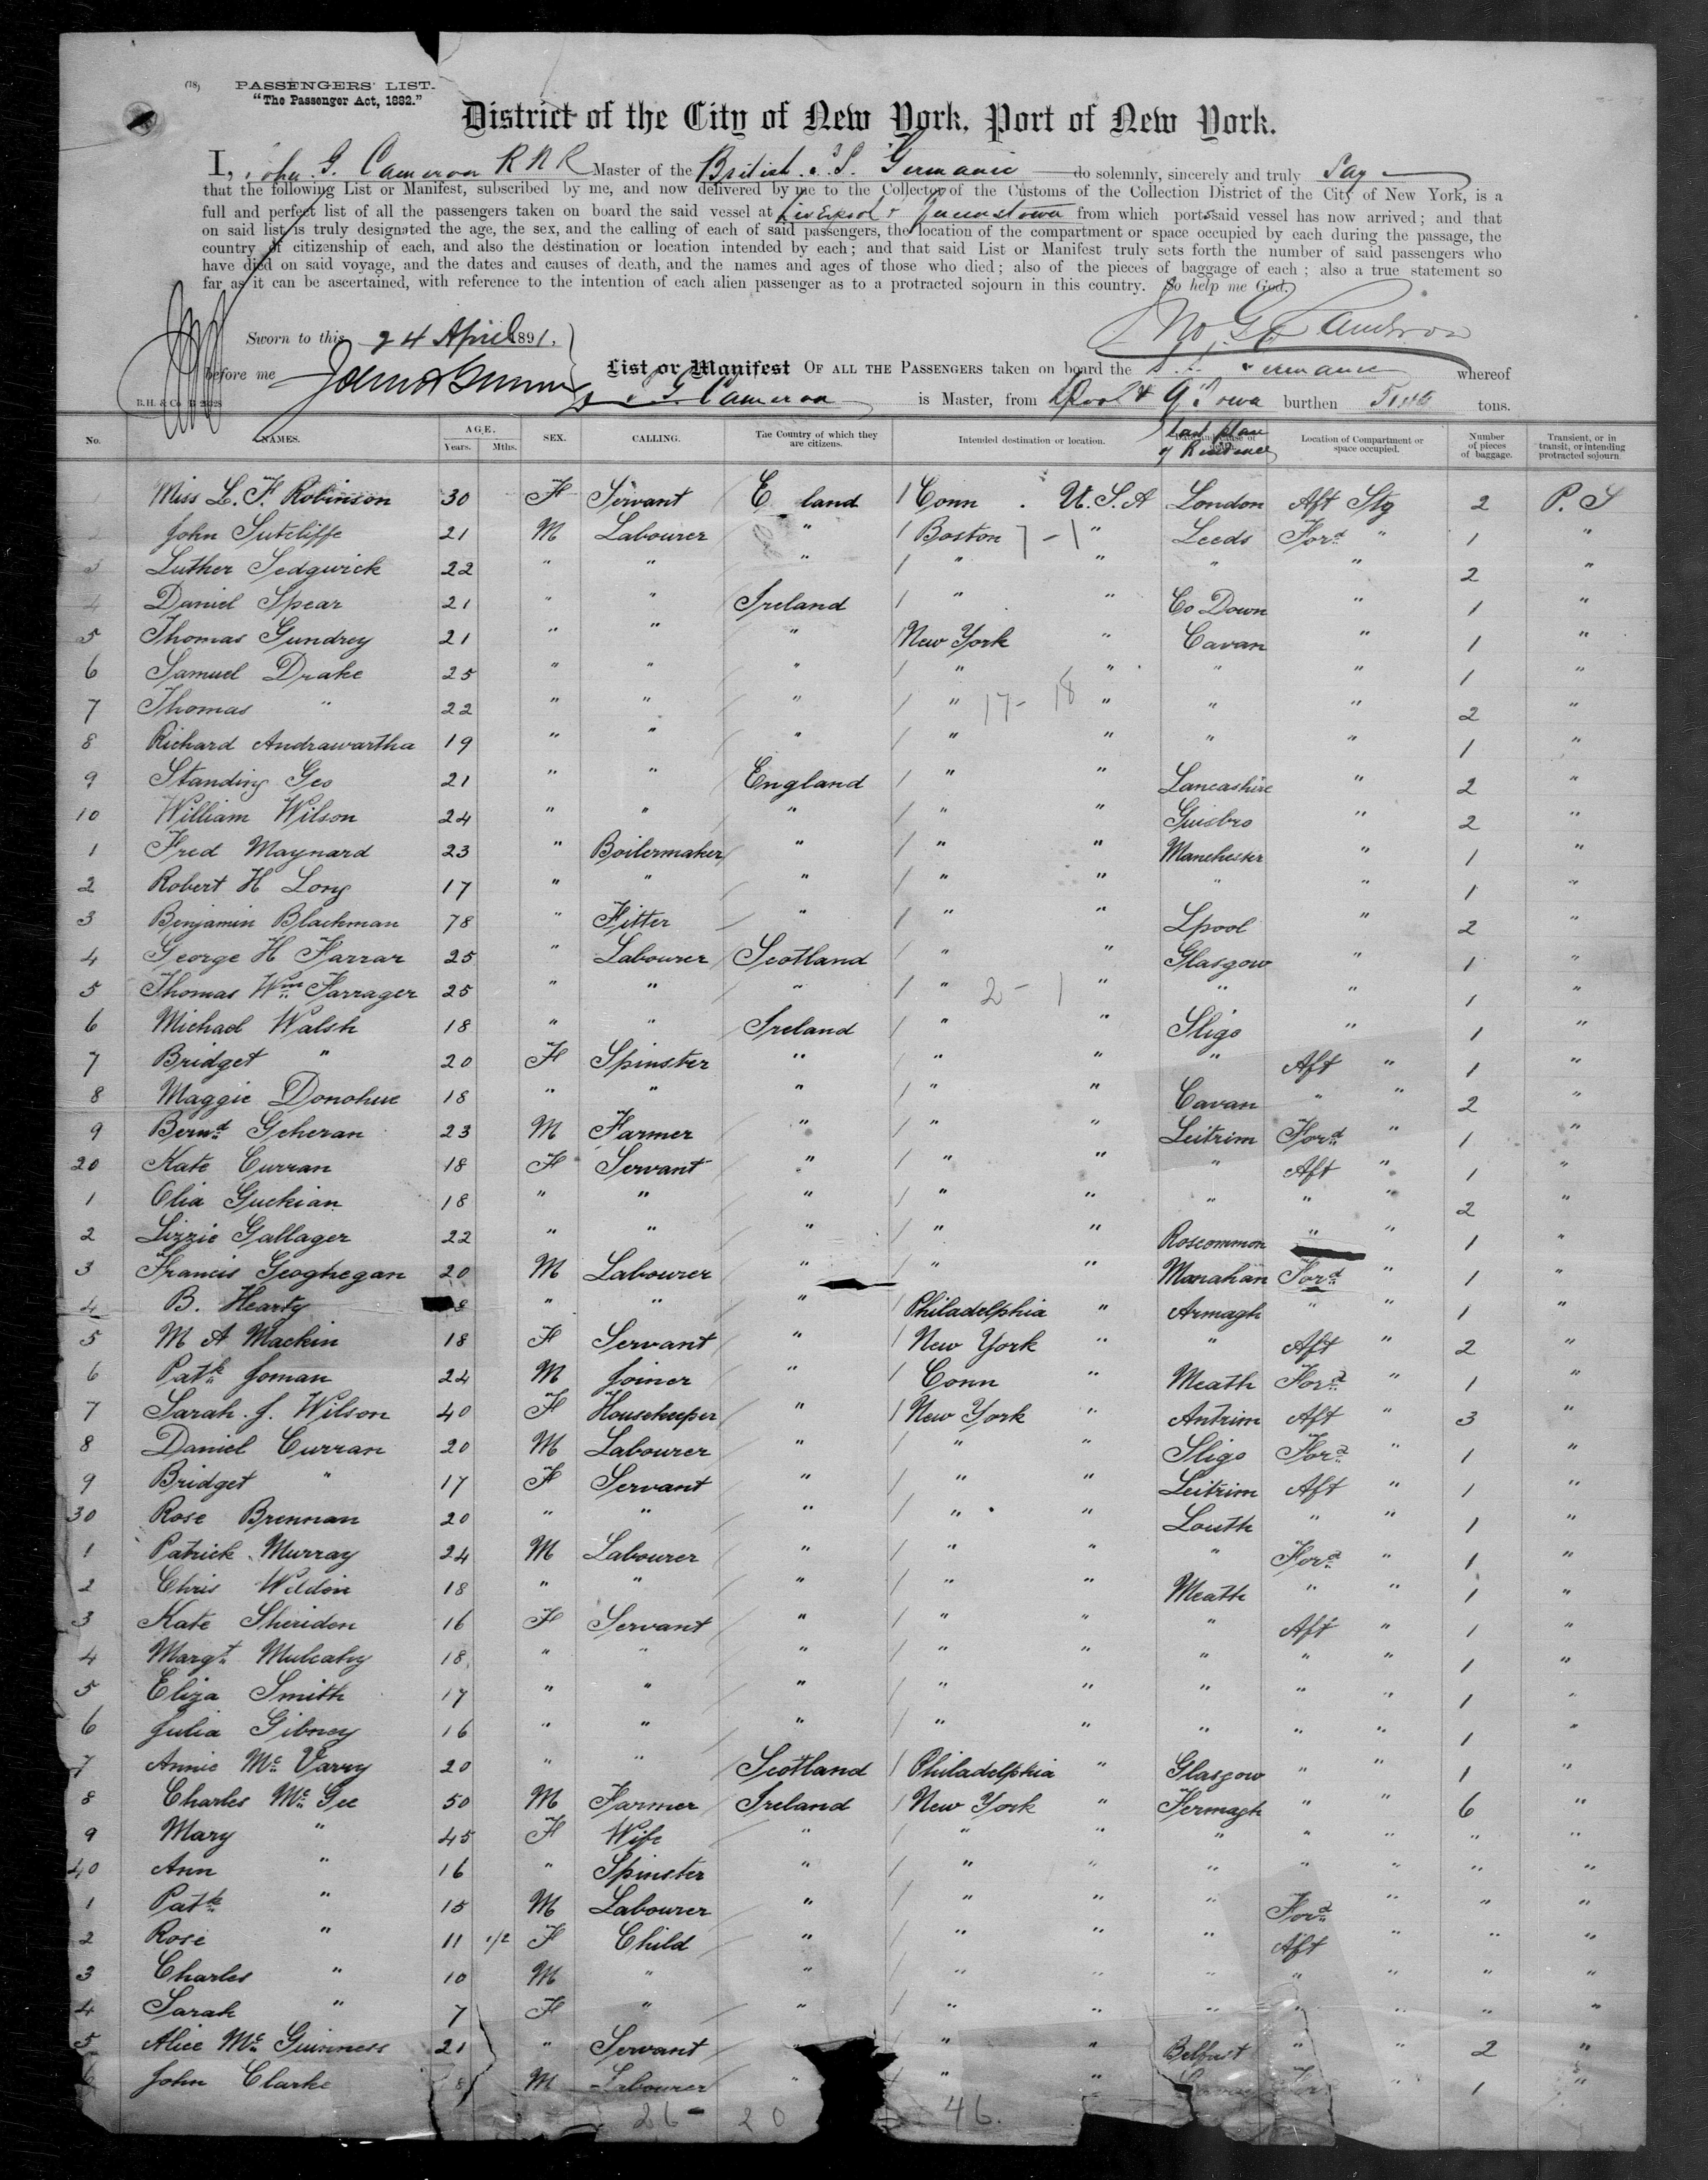 (18)
PASSENGERS' LIST.
"The Passenger Act, 1882."
District of the City of New York, Port of New York.
I, John G. Cameron R N R Master of the British S.S. Germanic do solemnly, sincerely and truly Say
that the following List or Manifest, subscribed by me, and now delivered by me to the Collector of the Customs of the Collection District of the City of New York, is a
full and perfect list of all the passengers taken on board the said vessel at Liverpool & Queenstown from which ports said vessel has now arrived; and that
on said list is truly designated the age, the sex, and the calling of each of said passengers, the location of the compartment or space occupied by each during the passage, the
country of citizenship of each, and also the destination or location intended by each; and that said List or Manifest truly sets forth the number of said passengers who
have died on said voyage, and the dates and causes of death, and the names and ages of those who died; also of the pieces of baggage of each; also a true statement so
far as it can be ascertained, with reference to the intention of each alien passenger as to a protracted sojourn in this country. So help me God.
Jno G. Cameron
Sworn to this 24 April 1891.
before me
List or Manifest OF ALL THE PASSENGERS taken on board the S.S. Germanic whereof
G Cameron is Master, from Lpool & Q'Town burthen tons.
No. NAMES. AGE. Years. Mths. SEX. CALLING. The Country of which they are citizens. Intended destination or location. Last place of Residence Location of Compartment or space occupied. Number of pieces of baggage. Transient, or in transit, or intending protracted sojourn.
Miss L. F. Robinson 30 F Servant E land / Conn . U.S.A London Aft Stg 2 P. S
2 John Sutcliffe 21 M Labourer " / Boston 7 - 1 " Leeds Ford " 1 "
3 Luther Sedgwick 22 " " " / " " " " 2 "
4 Daniel Spear 21 " " Ireland / " " Co Down " 1 "
5 Thomas Gundrey 21 " " " / New York " Cavan " 1 "
6 Samuel Drake 25 " " " / " " " " 1 "
7 Thomas " 22 " " " / " 17- 18 " " " 2 "
8 Richard Andrawartha 19 " " " / " " " " 1 "
9 Standing Geo 21 " " England / " " Lancashire " 2 "
10 William Wilson 24 " " " / " " Guisbro " 2 "
1 Fred Maynard 23 " Boilermaker " / " " Manchester " 1 "
2 Robert H Long 17 " " " / " " " " 1 "
3 Benjamin Blackman 78 " Fitter " / " " Lpool " 2 "
4 George H Farrar 25 " Labourer Scotland / " " Glasgow " 1 "
5 Thomas Wm Farrager 25 " " " / " 2 - 1 " " " 1 "
6 Michael Walsh 18 " " Ireland / " " Sligo " 1 "
7 Bridget " 20 F Spinster " / " " " Aft " 1 "
8 Maggie Donohue 18 " " " / " " Cavan " " 2 "
9 Bernd Geheran 23 M Farmer " / " " Leitrim Ford " 1 "
20 Kate Curran 18 F Servant " / " " " Aft " 1 "
1 Olia Guckian 18 " " " / " " " " 2 "
2 Lizzie Gallager 22 " " " / " " Roscommon " " 1 "
3 Francis Geoghegan 20 M Labourer " / " " Monahan Ford " 1 "
4 B. Hearty 8 " " " / Philadelphia " Armagh " " 1 "
5 M A Mackin 18 F Servant " / New York " " Aft " 2 "
6 Patk Joman 24 M Joiner " / Conn " Meath Ford " 1 "
7 Sarah. J. Wilson 40 F Housekeeper " / New York " Antrim Aft " 3 "
8 Daniel Curran 20 M Labourer " / " " Sligo Ford " 1 "
9 Bridget " 17 F Servant " / " " Leitrim Aft " 1 "
30 Rose Brennan 20 " " " / " " Louth " " 1 "
1 Patrick Murray 24 M Labourer " / " " " Ford " 1 "
2 Chris Weldon 18 " " " / " " Meath " " 1 "
3 Kate Sheridon 16 F Servant " / " " " Aft " 1 "
4 Margt Mulcahy 18 " " " / " " " " " 1 "
5 Eliza Smith 17 " " " / " " " " " 1 "
6 Julia Gibney 16 " " " / " " " " " 1 "
7 Annie Mc Varry 20 " " Scotland / Philadelphia " Glasgow " " 1 "
8 Charles Mc Gee 50 M Farmer Ireland / New York " Fermagh " " 6 "
9 Mary " 45 F Wife " / " " " " " " "
40 Ann " 16 " Spinster " / " " " " " " "
1 Patk " 15 M Labourer " / " " " Ford " " "
2 Rose " 11 1/2 F Child " / " " " Aft " " "
3 Charles " 10 M " " / " " " " " " "
4 Sarah " 7 F " " / " " " " " " "
5 Alice Mc Guinness 21 " Servant " " Belfast " " 2 "
6 John Clarke 8 M Labourer " / " " " 1 "
26 - 20 46.